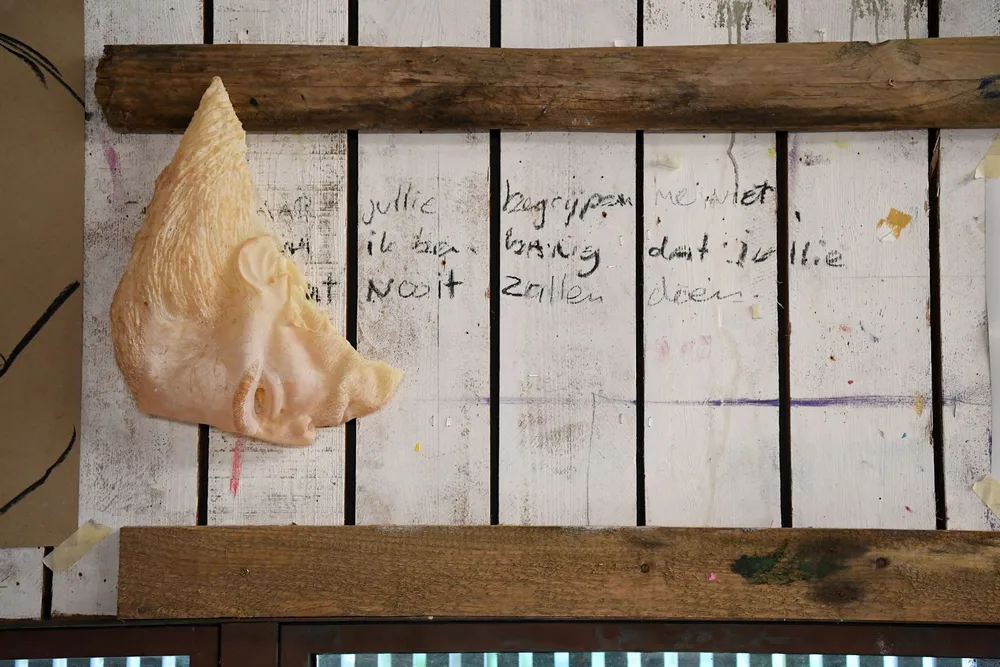 jullie begrijpen me niet
ik ben bang dat jullie
Nooit zullen doen.